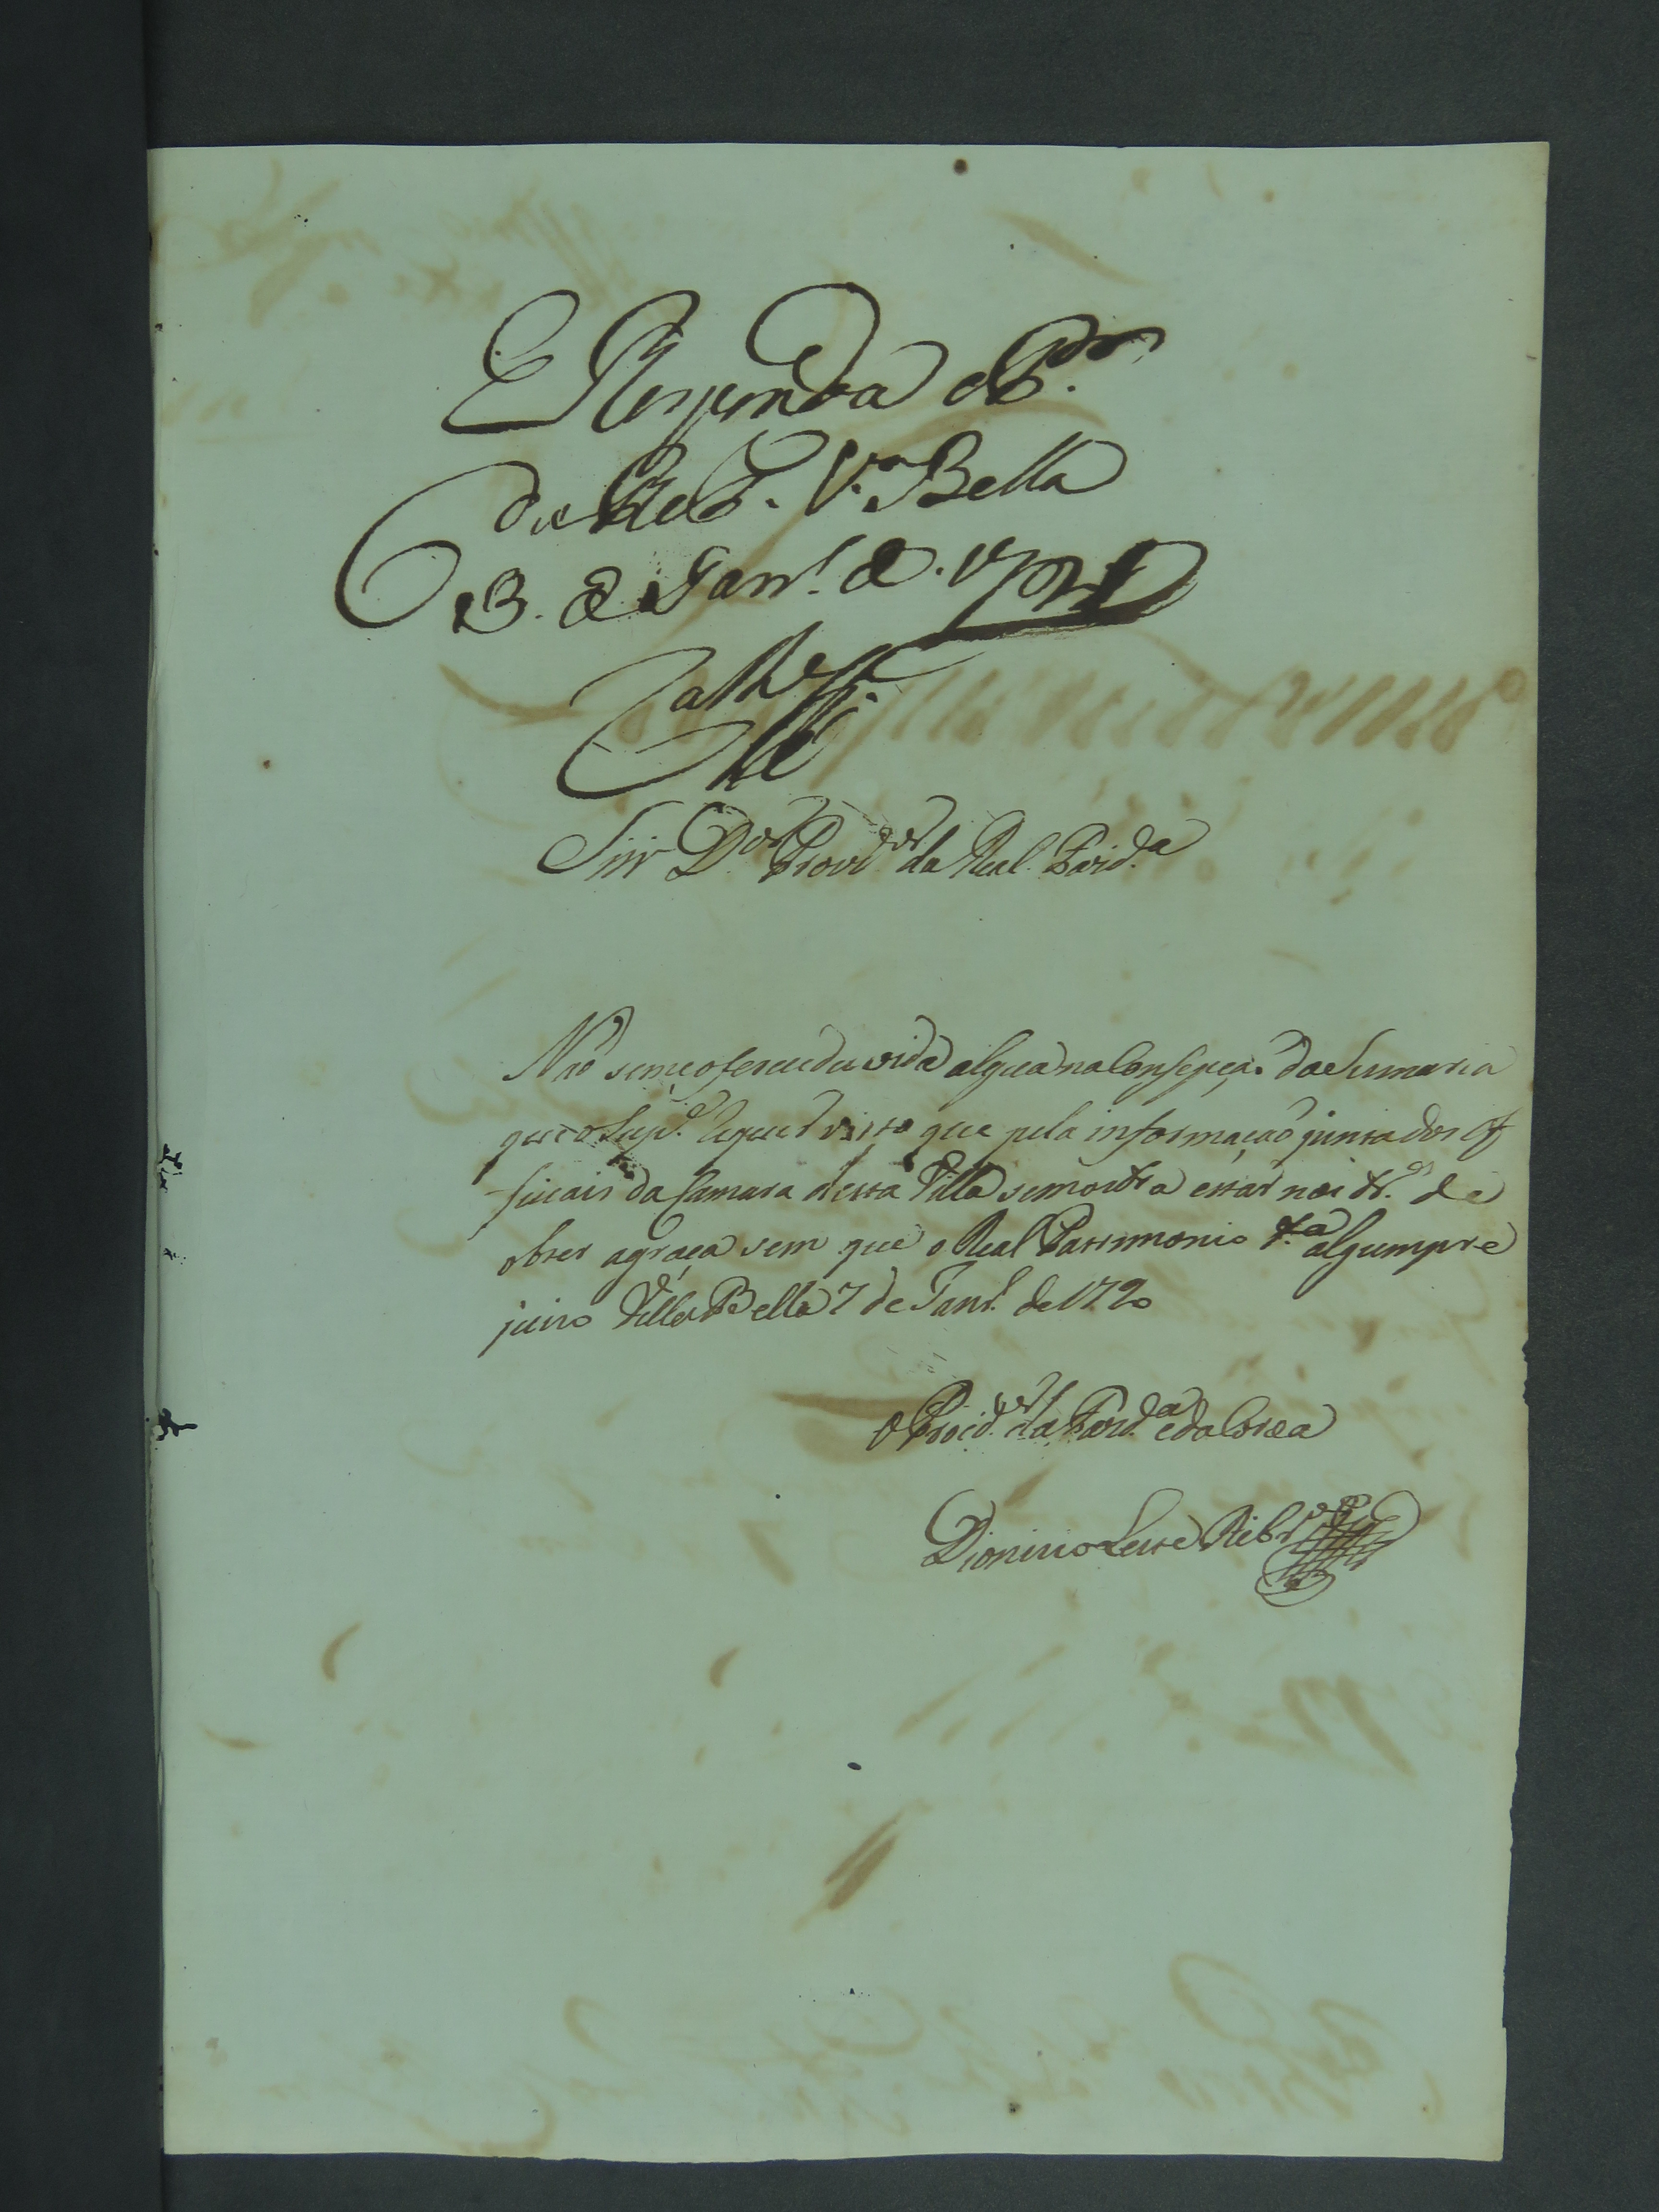 E Responda o P.dor
da Rel F. V.a Bella
3. de Janr.º de
Snr D.or Prov.or da Real Fazd.a
Não se me oferece du vida algũa na Consepçaõ da Sesmaria
que o Sup.e Requer visto que pela informaçaõ junta dos Of
ficiais da Camara desta Villa se mostra estar nos tr.os de
obter agraça sem que o Real Patrimonio t.a algum pre
juizo Villa Bella 7 de Janr.º de 1790
O Procd.or da Fazd.a e da Coroa
Dionizio Leite Ribr.o